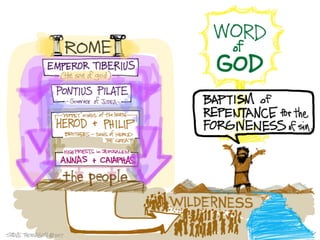 ROME
EMPEROR TIBERIUS
(the son of god)
PONTIUS PILATE
- Governor of JUDEA -
HEROD + PHILIP
BROTHERS - SONS of HEROD
THE GREAT
HIGH PRIESTS in JERUSALEM
ANNAS + CAIAPHAS
the people
WORD
of
GOD
BAPTISM of
REPENTANCE for the
FORGIVENESS of sin
WILDERNESS